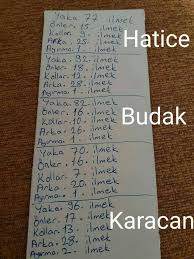 Yaka 77 ilmek
Önler. 15. ilmek
Kollar. 9. ilmek
Arka. 25. ilmek
Ayırma. 1. ilmek
Hatice
Yaka. 92. ilmek
Önler. 18. ilmek
Kollar. 12. ilmek
Arka. 28. ilmek
Ayırma. 1. ilmek
Yaka. 82. ilmek
Önler. 16. ilmek
Budak
Kollar. 10. ilmek
Arka. 26. ilmek
Ayırma. 1. ilmek
Yaka. 70. ilmek
Önler. 16. ilmek
Kollar. 7. ilmek
Arka. 20. ilmek
Ayırma. 1. ilmek
Yaka. 96. ilmek
Önler. 17. ilmek
Karacan
Kollar. 13. ilmek
Arka. 28. ilmek
Ayırma. 2. ilmek